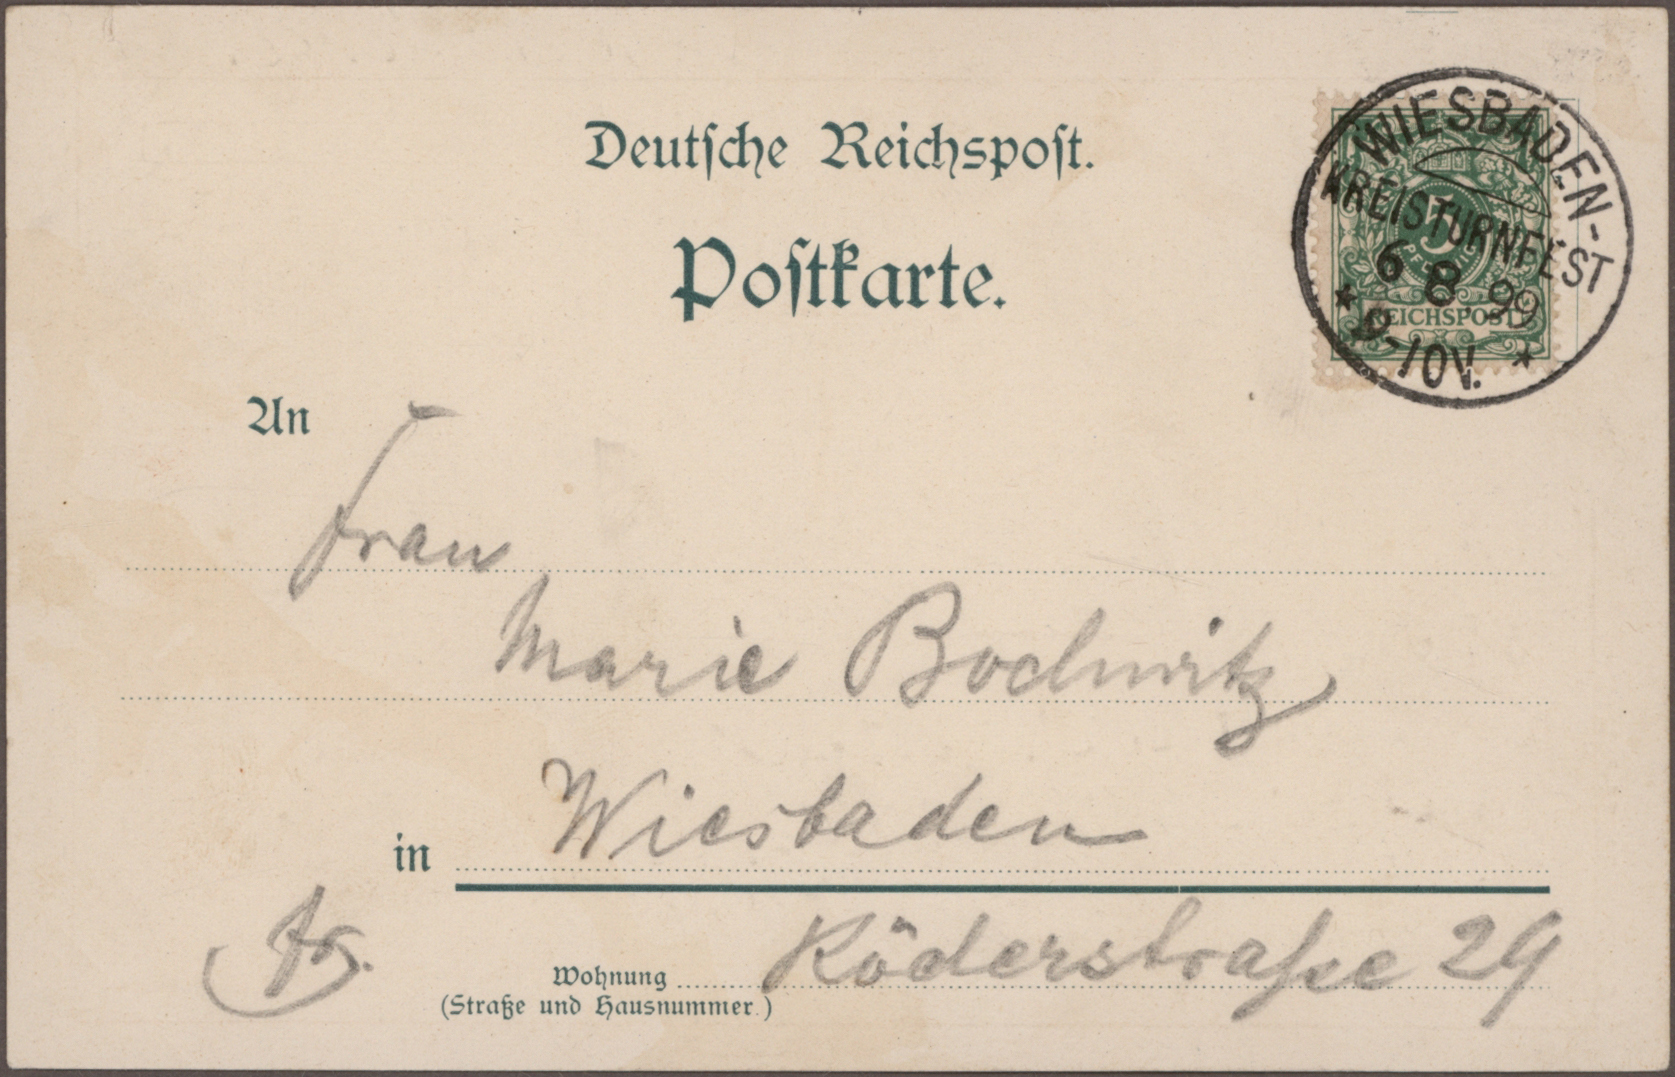 Deutsche Reichspost.
Postkarte.
WIESBADEN-
KREISTURNFEST
6 8.99
9-10V.
5
PFENNIG
REICHSPOST
An
Frau
Marie Bochwitz
in Wiesbaden
Wohnung Röderstraße 29
(Straße und Hausnummer.)